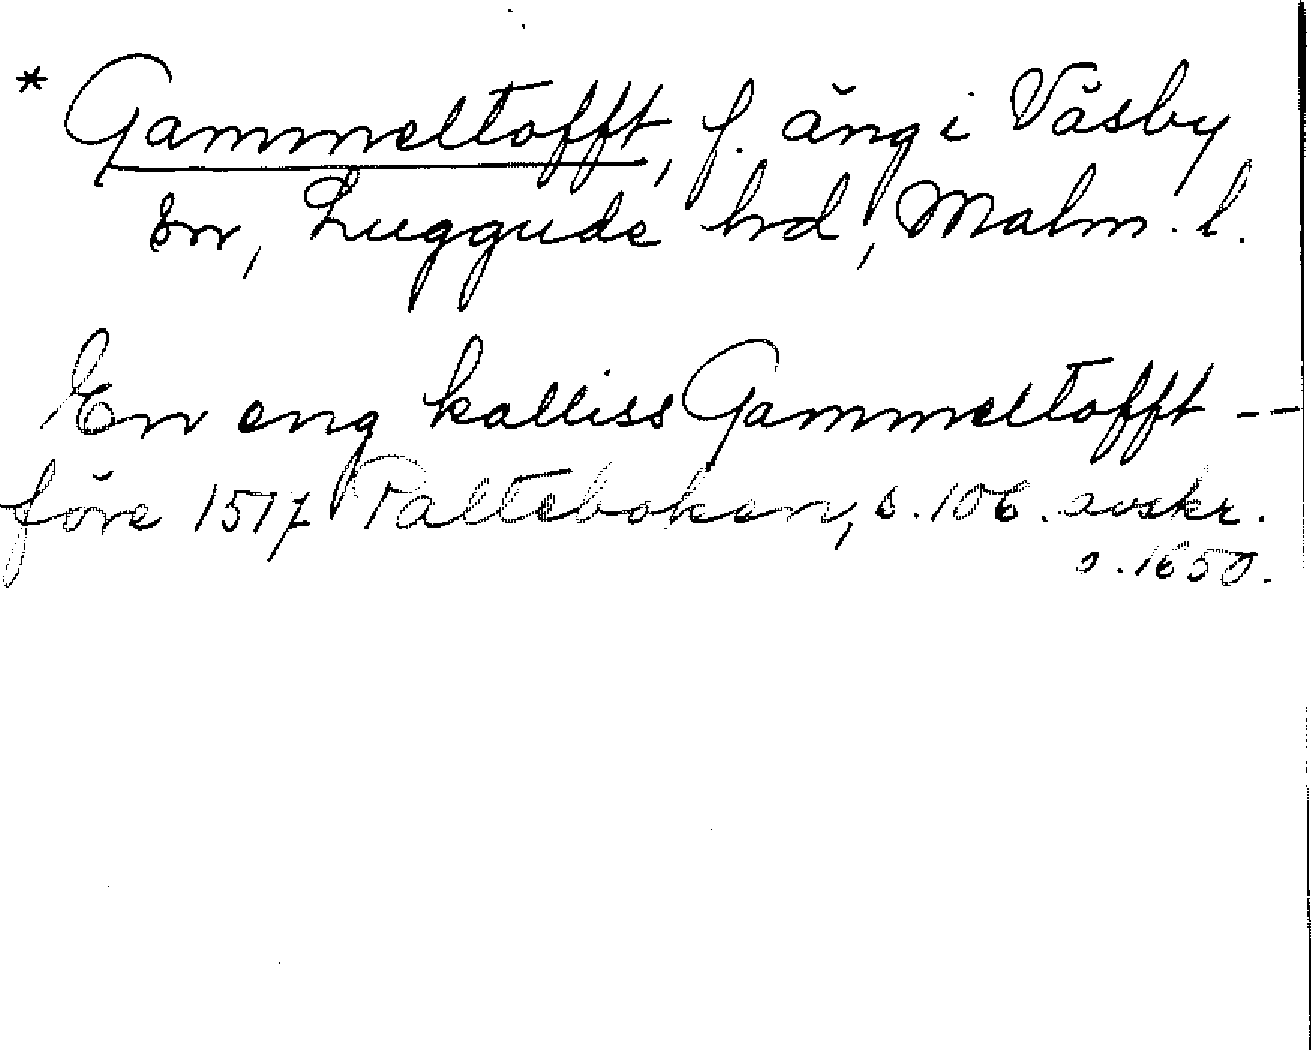 * Gammeltofft, f. äng i Väsby
sn, Luggude hd, Malm. l.
En eng kalliss Gammeltofft --
före 1517 Palteboken, s. 106. avskr.
o. 1650.